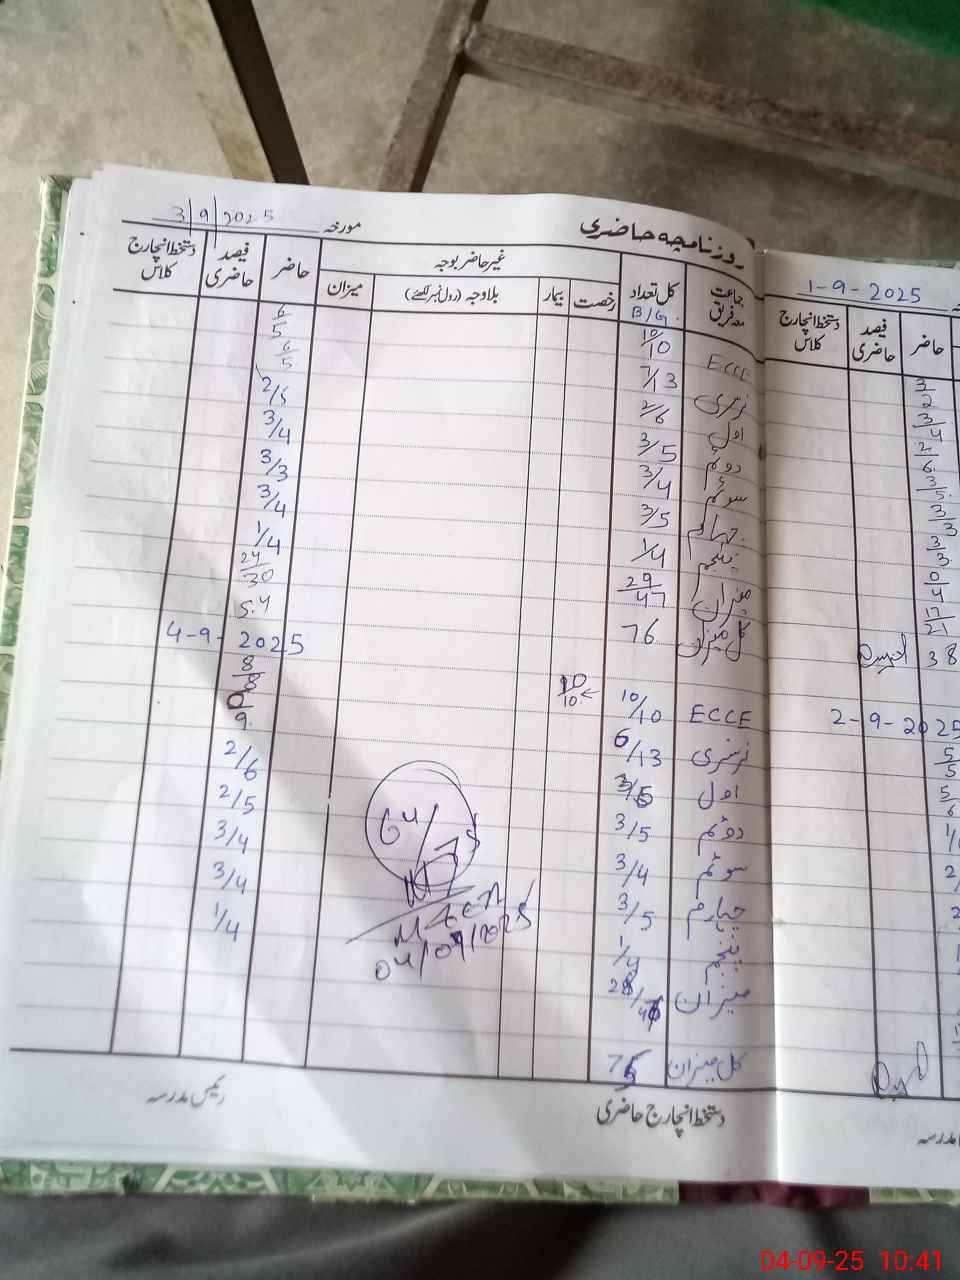 روزنامچہ حاضری
مورخہ 3/9/2025
جماعت معہ فریق
کل تعداد
B/G.
غیر حاضر بوجہ
رخصت
بیمار
بلاوجہ (رول نمبر لکھیئے)
میزان
حاضر
فیصد حاضری
دستخط انچارج کلاس
ECCE 10/10 6/5
نرسری 7/13 6/5
اول 2/6 2/5
دوئم 3/5 3/4
سوئم 3/4 3/3
چہارم 3/5 3/4
پنجم 1/4 1/4
میزان 29/47 24/30
کل میزان 76 54
4-9-2025
ECCE 10/10 8/8
نرسری 6/13 0/9
اول 3/5 2/6
دوئم 3/5 2/5
سوئم 3/4 3/4
چہارم 3/5 3/4
پنجم 1/4 1/4
میزان 28/46
کل میزان 75
64/75
MEA
04/09/2025
دستخط انچارج حاضری
رئیس مدرسہ
1-9-2025
حاضر
فیصد حاضری
دستخط انچارج کلاس
3/2
3/4
2/6
3/5
3/3
3/3
0/4
17/21
38
2-9-2025
5/5
مدرسہ
04-09-25 10:41